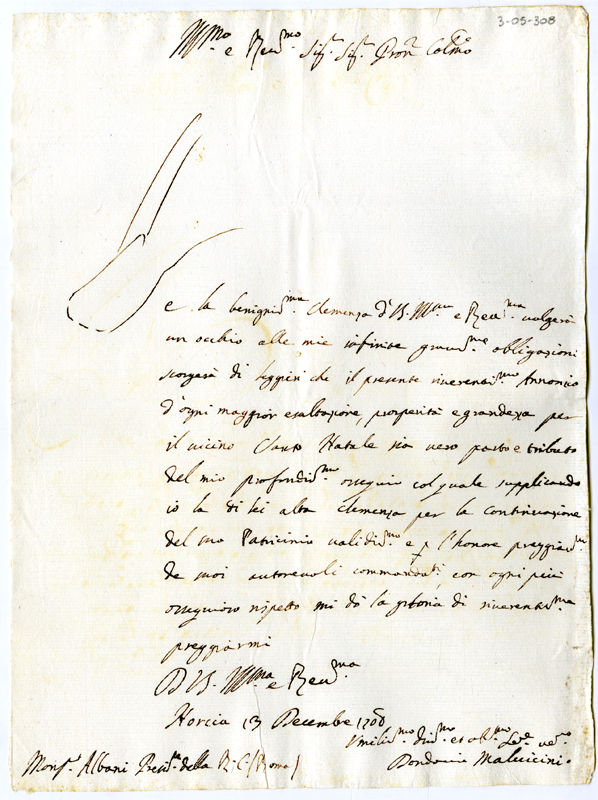 3-05-308
Ill.mo e Rev.mo Sig.r Sig.r Pron. Colmo
Se la benignis.ma clemenza d'V.S. Ill.ma e Rev.ma volgerà
un occhio alle mie infinite grandis.me obligazioni
scorgerà di leggieri che il presente riverentis.mo Annonzio
d'ogni maggior esaltazione, prosperità e grandezza per
il vicino Santo Natale sia vero parto e tributo
del mio profondis.mo ossequio col quale supplicando
io la di lei alta clemenza per la continuazione
del suo Patricinio validis.mo e p l'honore preggiatis.mo
de suoi autorevoli commandati, con ogni più
ossequioso rispetto mi dò la gloria di riverentis.ma
preggiarmi
D V.S. Ill.ma e Rev.ma
Norcia 13 Decembre 1700
Umilis.mo Div.mo et ob.mo Se.re ve.ro
Monsr. Albani Presid.te della R. C. (Roma)
Malvicini